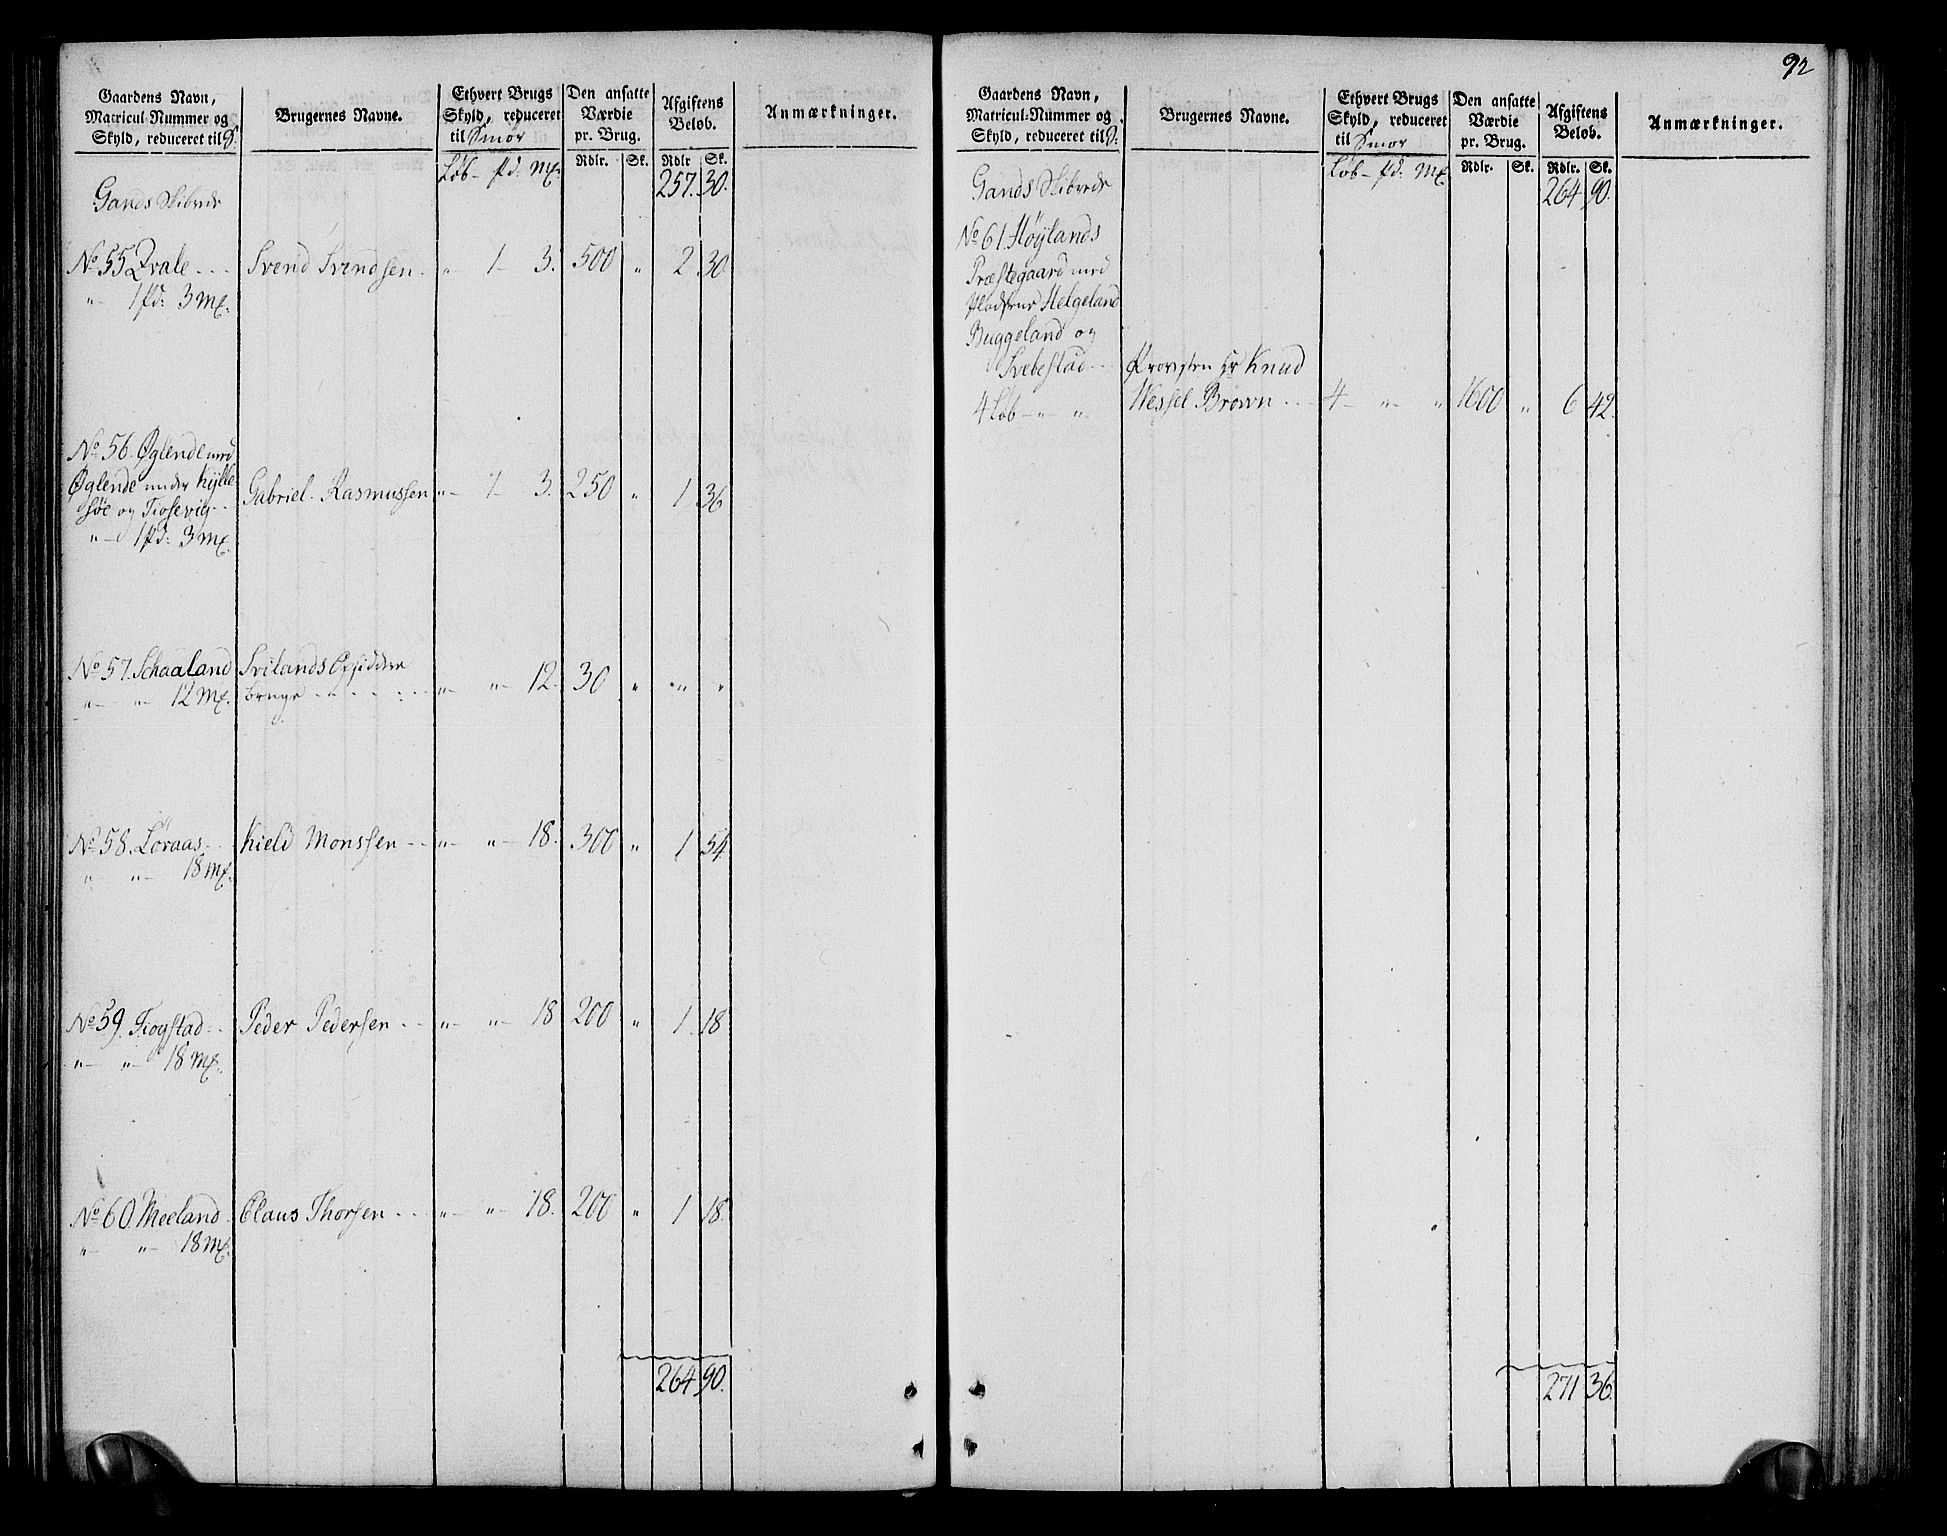 Gaardens Navn,
Matricul-Nummer og
Skyld, reduceret til
Brugernes Navne.
Ethvert Brugs
Skyld, reduceret
til Smør
Den ansatte
Værdie
pr. Brug.
Afgiftens
Beløb.
Anmærkninger.
Rdlr. Sk. Rdlr Sk.
Løb- pd: Mk.
Gands Skibrede 257. 30.
No 55 Qvale Svend Svendsen " 1- 3. 500 " 2 30
" 1 pd: 3 Mk.
No 56. Øglende med
Øglende under Kylle
søe og Tiosevig Gabriel Rasmussen "- 1- 3. 250 " 1 36
"- 1 pd: 3 Mk.
No 57. Schaaland Svilands Opsiddere
"- "- 12 Mk. bruge "- "- 12. 30 " " "
No 58. Løraas Kield Monssen "- "- 18. 300 " 1 54
" "- 18 Mk.
No 59. Fiogstad Peder Pedersen "- "- 18 200 " 1. 18
"- "- 18 Mk.
No 60. Meeland Claus Thorsen "- "- 18. 200 " 1 18.
"- "- 18 Mk.
264 90.
92
Gaardens Navn,
Matricul-Nummer og
Skyld, reduceret til
Brugernes Navne.
Ethvert Brugs
Skyld, reduceret
til Smør
Den ansatte
Værdie
pr. Brug.
Afgiftens
Beløb.
Anmærkninger.
Rdlr. Sk. Rdlr. Sk.
Løb- pd: Mk.
Gands Skibrede 264 90.
No 61. Høylands
Præstegaard med
Pladsene Helgeland
Buggeland og
Svebestad Provsten Hr Knud
4 Løb- "- " Wessel Brown 4- "- " 1600 " 6 42.
271 36.